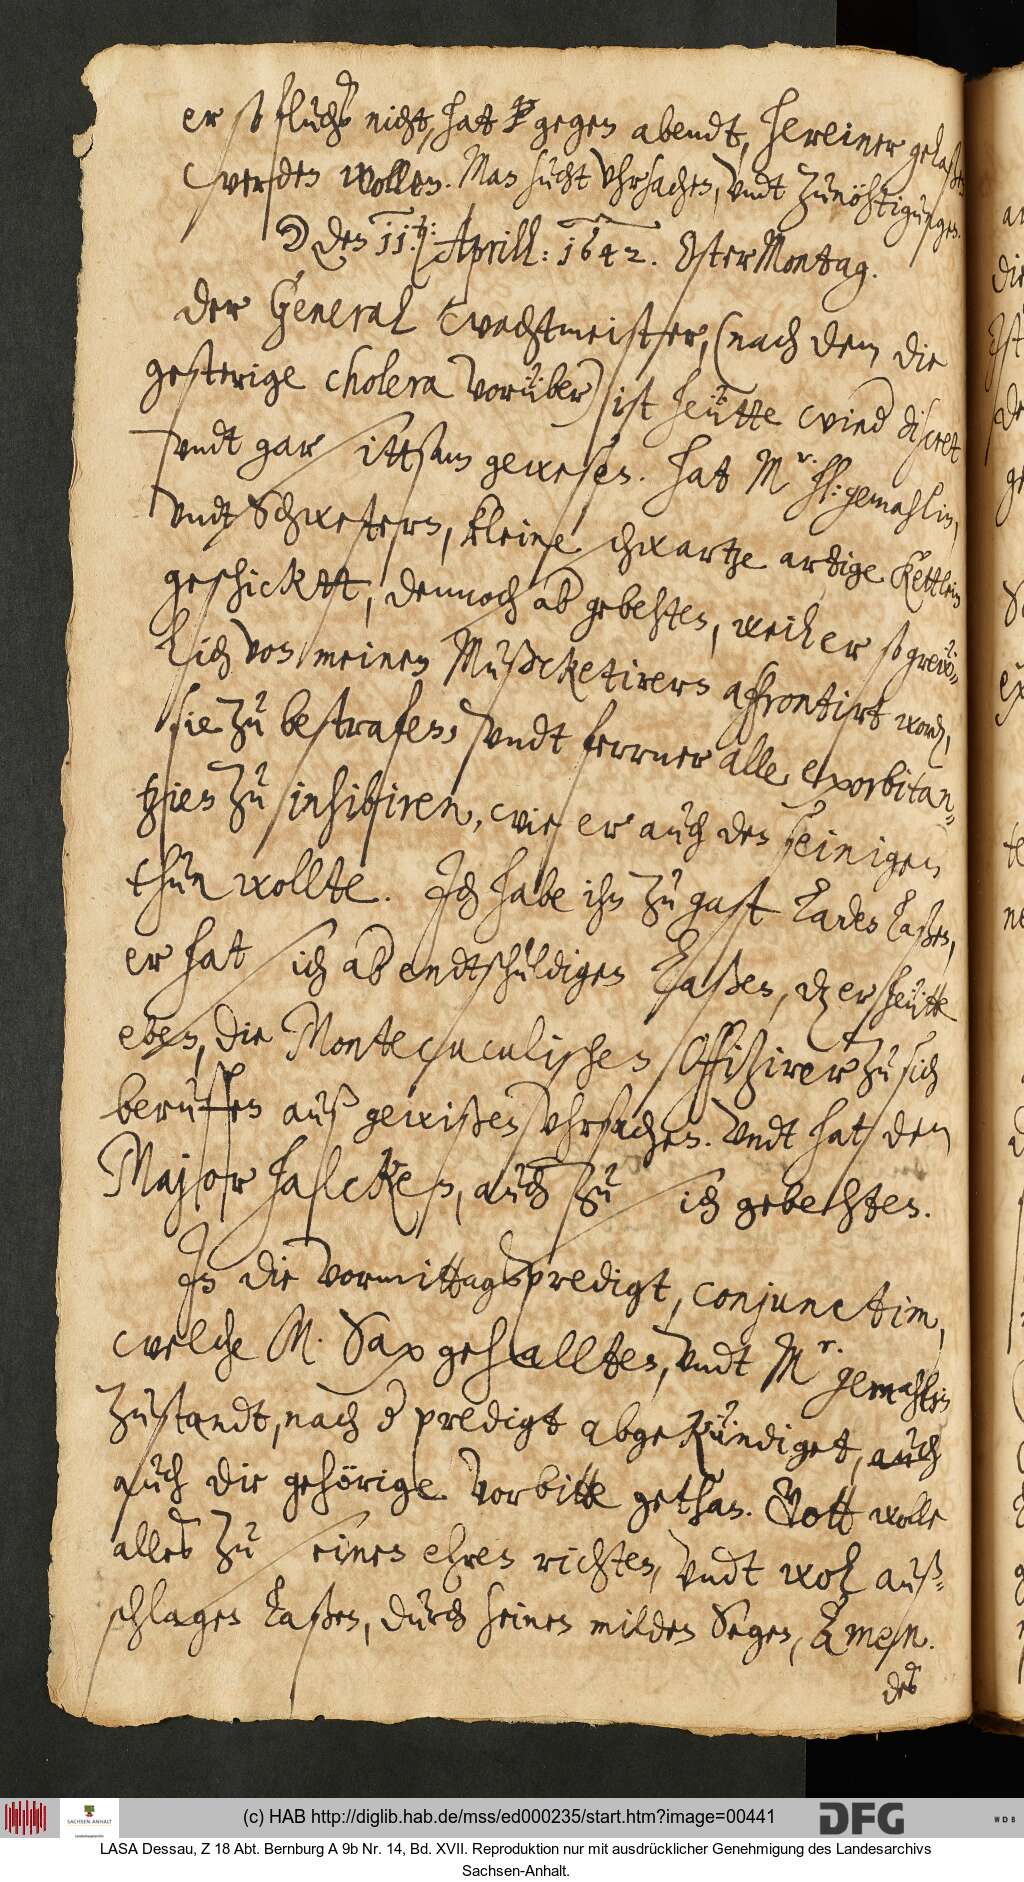 er so fluchß nicht, hat gegen abendt, hereiner gelaßen
werden wollen. Man sucht vhrsachen, vndt zunöhtigungen.
☽ den 11.ten: Aprill: 1642. OsterMontag.
Der General wachtmeister, (nach dem die
gesterige cholera vorüber) ist heütte wied discret
vndt gar sittsam gewesen. hat Mr. hl: gemahlin,
vndt Schwestern, kleine schwartze artige Kettlein
geschicktt, dennoch ab gebehten, weil er so grew¬
lich von meinen Mußcketirern affrontirt word,
sie zu bestrafen, vndt ferrner alle exorbitan¬
tzien zu inhibiren, wie er auch den seinigen
thun wollte. Jch habe ihn zu gast laden laßen,
er hat sich ab endtschuldigen laßen, dz er heütte
eben, die Montecuculischen Offizirer zu sich
beruffen auß gewißen vhrsachen. Vndt hat den
Major Halcken, auch zu sich gebehten.
Jn die vormittagspredigt, conjunctim,
welche M. Sax gehallten, vndt Mr. gemahlin
zustandt, nach d predigt abgekündiget, auch
auch die gehörige vorbitte gethan. Gott wolle
alles zu seinen ehren richten, vndt wol auß¬
schlagen laßen, durch seinen milden Segen, Amen.
des
(c) HAB http://diglib.hab.de/mss/ed000235/start.htm?image=00441
SACHSEN-ANHALT
DFG
WDB
LASA Dessau, Z 18 Abt. Bernburg A 9b Nr. 14, Bd. XVII. Reproduktion nur mit ausdrücklicher Genehmigung des Landesarchivs
Sachsen-Anhalt.